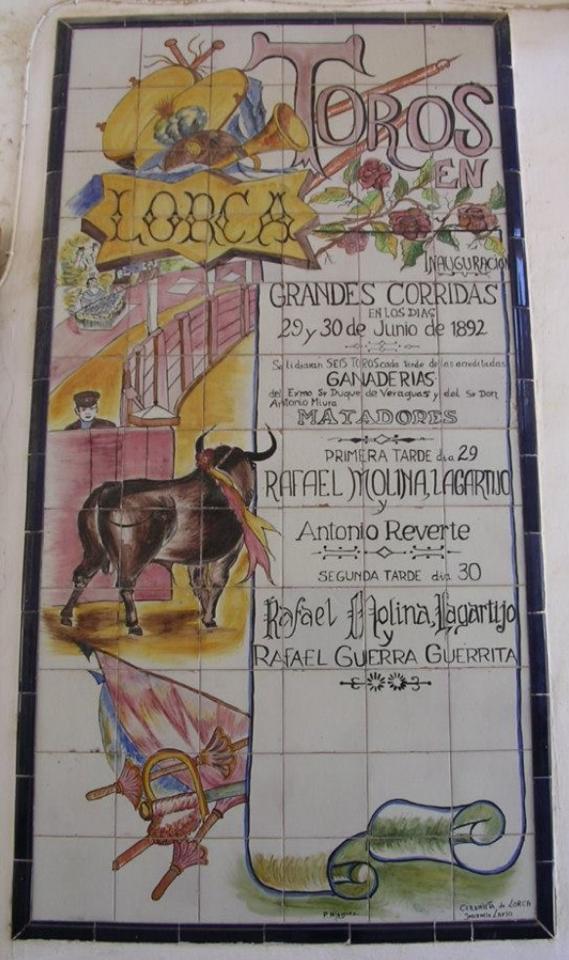 TOROS
EN
LORCA
INAUGURACION
GRANDES CORRIDAS
EN LOS DIAS
29 y 30 de Junio de 1892
Se lidiaran SEIS TOROS cada tarde de las acreditadas
GANADERIAS
del Exmo Sr Duque de Veraguas y del Sr Don
Antonio Miura
MATADORES
PRIMERA TARDE dia 29
RAFAEL MOLINA, LAGARTIJO
y
Antonio Reverte
SEGUNDA TARDE dia 30
Rafael Molina, Lagartijo
y
RAFAEL GUERRA GUERRITA
CERAMICA de LORCA